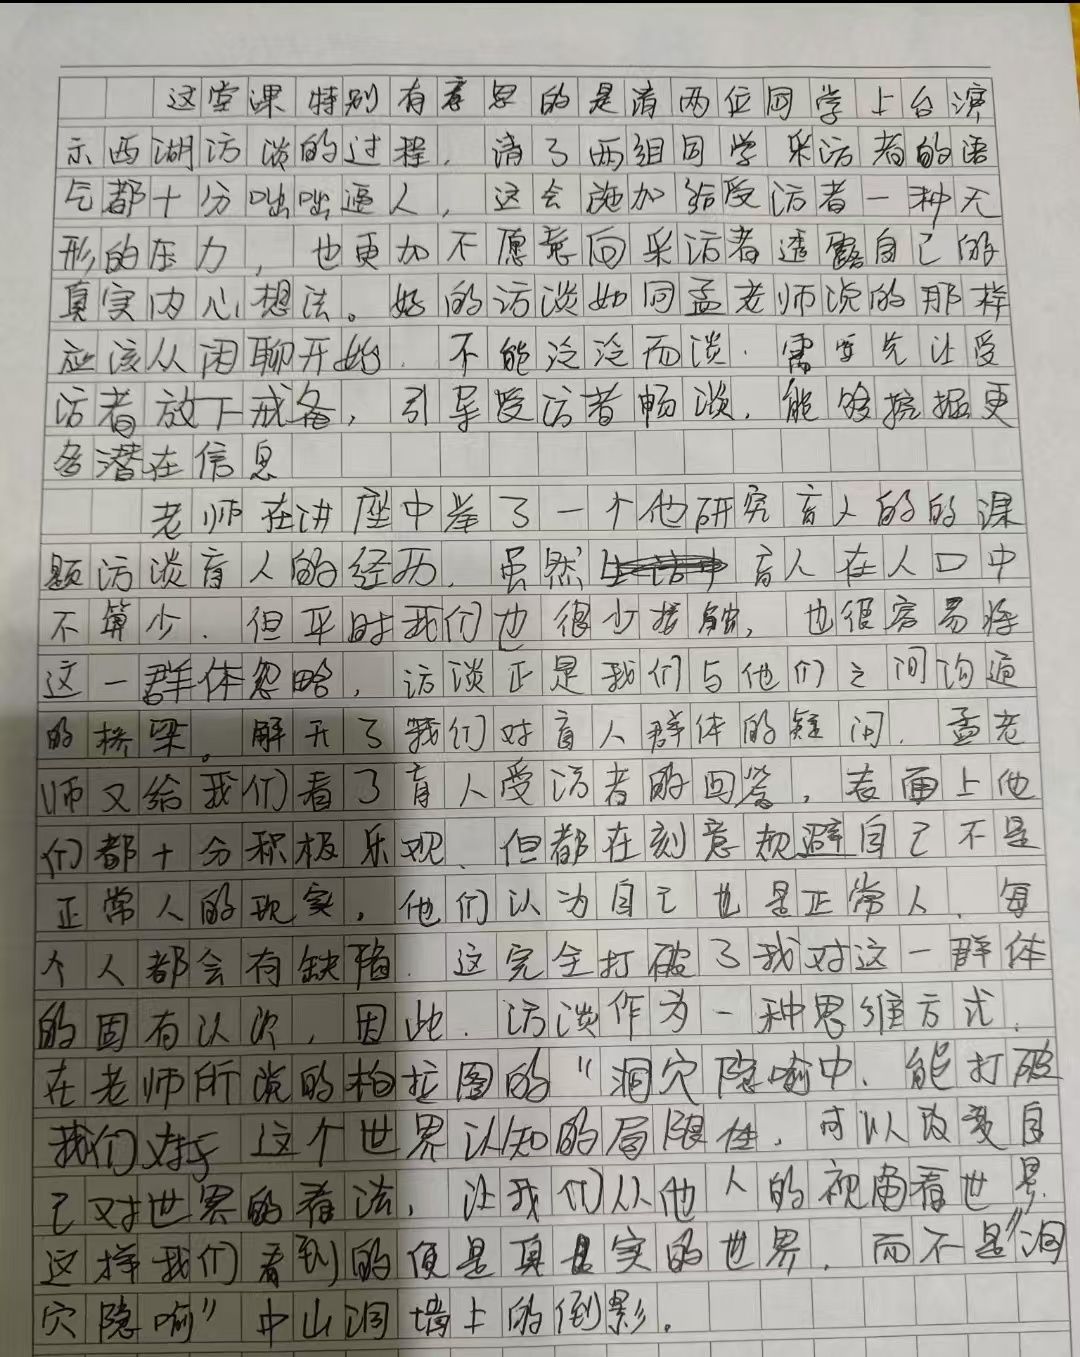 这堂课特别有意思的是请两位同学上台演
示西湖访谈的过程，请了两组同学采访者的语
气都十分咄咄逼人，这会施加给受访者一种无
形的压力，也更加不愿意向采访者透露自己的
真实内心想法。好的访谈如同孟老师说的那样
应该从闲聊开始，不能泛泛而谈，需要先让受
访者放下戒备，引导受访者畅谈，能够挖掘更
多潜在信息
老师在讲座中举了一个他研究盲人的的课
题访谈盲人的经历，虽然盲人在人口中
不算少，但平时我们也很少接触，也很容易将
这一群体忽略，访谈正是我们与他们之间沟通
的桥梁。解开了我们对盲人群体的疑问，孟老
师又给我们看了盲人受访者的回答，表面上他
们都十分积极乐观、但都在刻意规避自己不是
正常人的现实，他们认为自己也是正常人，每
个人都会有缺陷，这完全打破了我对这一群体
的固有认次，因此，访谈作为一种思维方式，
在老师所说的柏拉图的“洞穴隐喻中，能打破
我们对于这个世界认知的局限性，可以改变自
己对世界的看法，让我们从他人的视角看世界
这样我们看到的便是真实的世界，而不是“洞
穴隐喻”中山洞墙上的倒影。